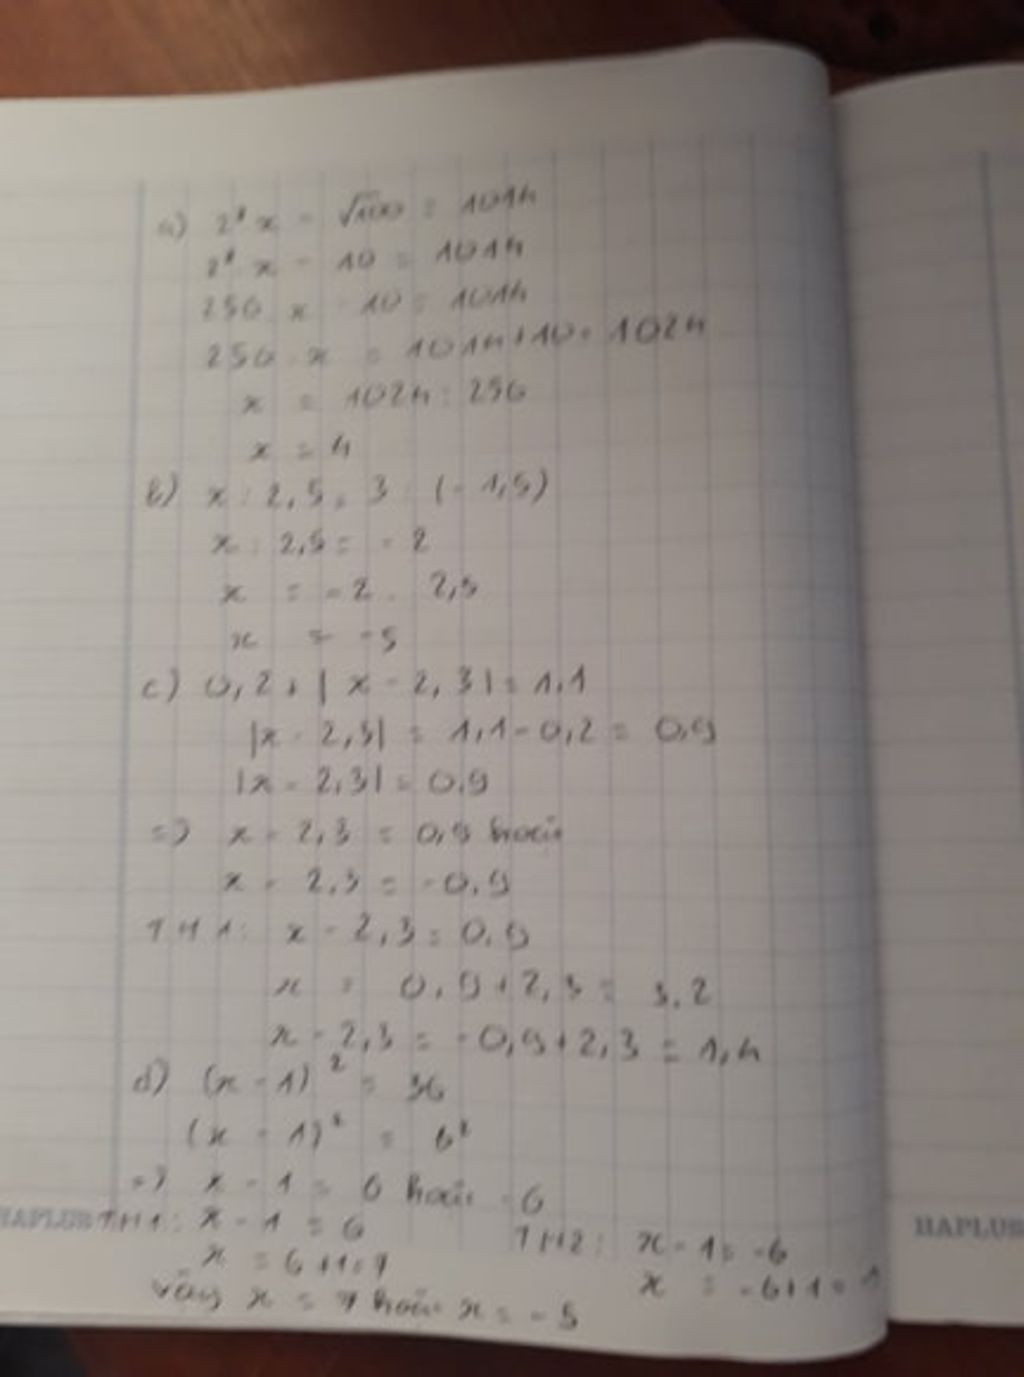 a) 2⁸ x - √100 = 1014
2⁸ x - 10 = 1014
256 x - 10 = 1014
256 x = 1014+10= 1024
x = 1024 : 256
x = 4
b) x : 2,5 = 3 : (-1,5)
x : 2,5 = - 2
x = -2 . 2,5
x = -5
c) 0,2 + | x - 2,3| = 1,1
|x - 2,3| = 1,1 - 0,2 = 0,9
|x - 2,3| = 0,9
=) x - 2,3 = 0,9 hoặc
x - 2,3 = -0,9
TH1: x - 2,3 = 0,9
x = 0,9+2,3 = 3,2
x - 2,3 = -0,9+2,3 = 1,4
d) (x - 1)² = 36
(x - 1)² = 6²
=) x - 1 = 6 hoặc -6
HAPLUS TH1: x - 1 = 6 TH2: x - 1 = -6 HAPLUS
x = 6+1=7 x = -6+1=
vậy x = 7 hoặc x = -5